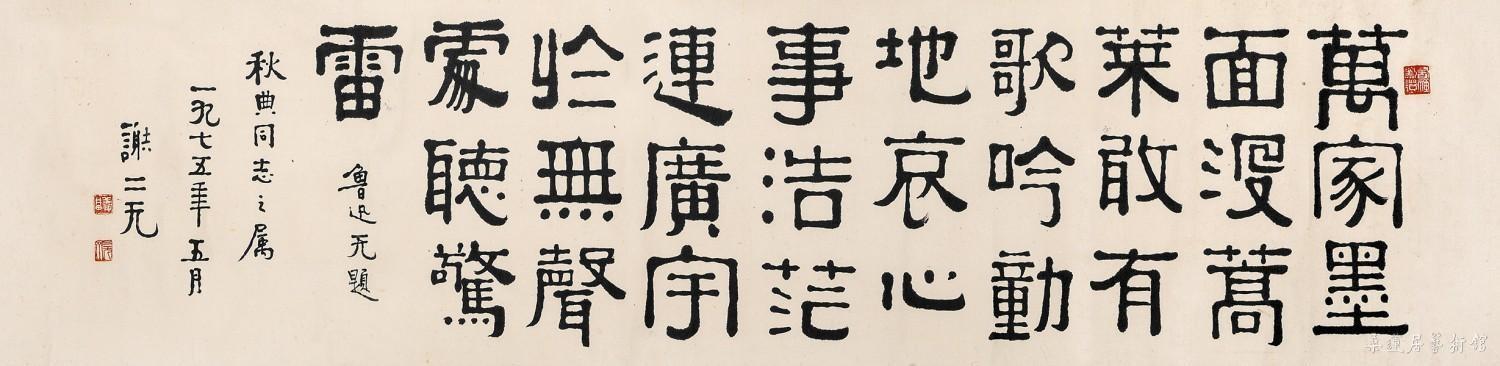 萬家墨
面沒蒿
萊敢有
歌吟動
地哀心
事浩茫
連廣宇
於無聲
處聽驚
雷
魯迅无題
秋典同志之属
一九七五年五月
謝二无